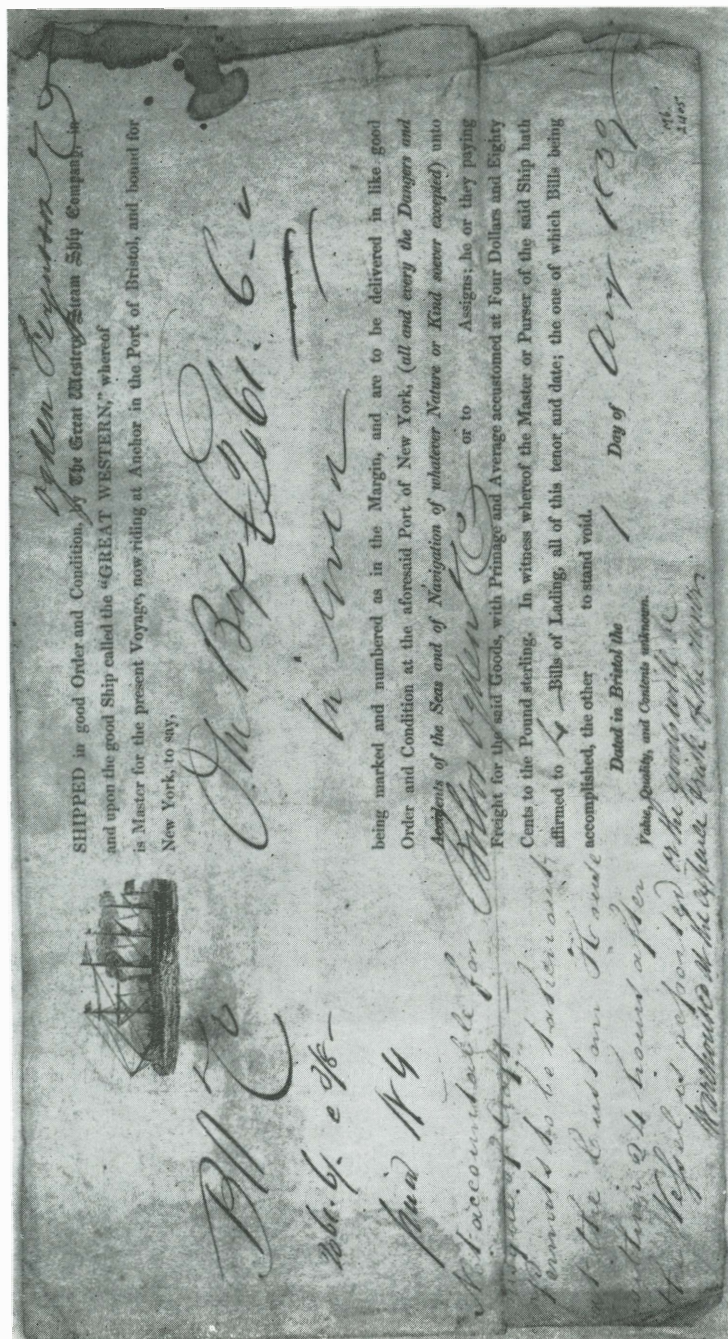 Ogden Ferguson
SHIPPED in good Order and Condition, by The Great Western Steam Ship Company, in
and upon the good Ship called the "GREAT WESTERN," whereof
is Master for the present Voyage, now riding at Anchor in the Port of Bristol, and bound for
New York, to say,
One Box
being marked and numbered as in the Margin, and are to be delivered in like good
Order and Condition at the aforesaid Port of New York, (all and every the Dangers and
Accidents of the Seas and of Navigation of whatever Nature or Kind soever excepted) unto
Ogden or to Assigns; he or they paying
Freight for the said Goods, with Primage and Average accustomed at Four Dollars and Eighty
Cents to the Pound sterling. In witness whereof the Master or Purser of the said Ship hath
affirmed to 4 Bills of Lading, all of this tenor and date; the one of which Bills being
accomplished, the other to stand void.
Dated in Bristol the 1 Day of Aug 1839
Value, Quality, and Contents unknown.
paid NY
Not accountable for
Permits to be taken out
at the Custom House
within 24 hours after
the Vessel is reported or the goods will be
Warehoused at the expense & risk of the